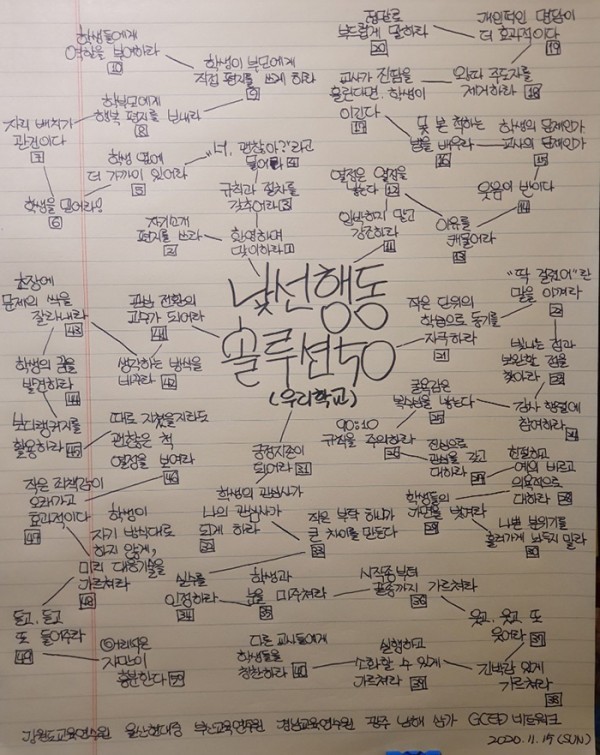 학생들에게
역할을 부여하라
10
학생이 부모에게
직접 편지를 쓰게 하라
9
정답로
부드럽게 말하라
20
개인적인 면담이
더 효과적이다
19
교사가 진땀을
흘린다면, 학생이
이긴다
17
왕따 주도자를
제거하라 18
학부모에게
행복 편지를 보내라
8
자리 배치가
관건이다
7
학생을 믿어라!
6
학생 옆에
더 가까이 있어라
5
"너, 괜찮아?"라고
물어라 4
못 본 척하는
법을 배우라
16
학생의 문제인가
교사의 문제인가
15
규칙과 절차를
갖추어라 3
열정은 열정을
낳는다 12
웃음이 반이다
14
자기소개
편지를 쓰라
2
환영하며
맞이하라 1
일반화지 말고
강조하라
11
이유를
캐물어라
13
낯선행동
솔루션50
(우리학교)
초장에
문제의 싹을
잘라내라
43
관심 전환의
고수가 되어라
41
작은 단위의
학습으로 동기를
자극하라
21
"딱 걸렸어"란
말을 아껴라
22
학생의 꿈을
발견하라
44
생각하는 방식을
바꿔라 42
빛나는 점과
보완할 점을
찾아라 23
굴욕감은
복수심을 낳는다
25
감사 행렬에
참여하라 24
브다랭커지를
활용하라 45
때로 지쳤을지라도
괜찮은 척
열정을 보여라
46
90:10
규칙을 주의하라
26
긍정지존이
되어라 31
진심으로
관심을 갖고
대하라 27
한결하고
예의 바르고
의욕적으로
대하라 28
작은 죄책감이
오래가고
효과적이다
47
학생의 관심사가
나의 관심사가
되게 하라
32
학생들의
가면을 벗겨라
29
학생이
자기 방식대로
하지 않게,
미리 대응기술을
가르쳐라
48
작은 부탁 하나가
큰 차이를 만든다
33
나쁜 분위기를
흘러가게 놔두지 말라
30
실수를
인정하라
34
학생과
눈을 마주쳐라
35
시작종부터
끝종까지 가르쳐라
36
듣고, 듣고
또 들어주라
49
웃고, 웃고 또
웃어라 37
자만이
충분한다 50
다른 교사들에게
학생들을
칭찬하라 40
실행하고
소화할 수 있게
가르쳐라 39
긴박감 있게
가르쳐라
38
강원도교육연수원 울산현대중 부산교육연수원 경남교육연수원 광주 남해 상가 GCED 네트워크
2020.11.15(SUN)